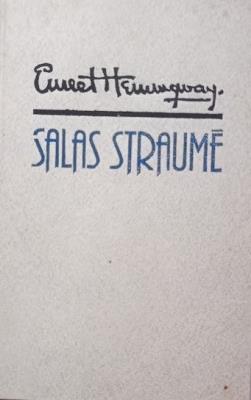 Ernest Hemingway.
SALAS STRAUMĒ